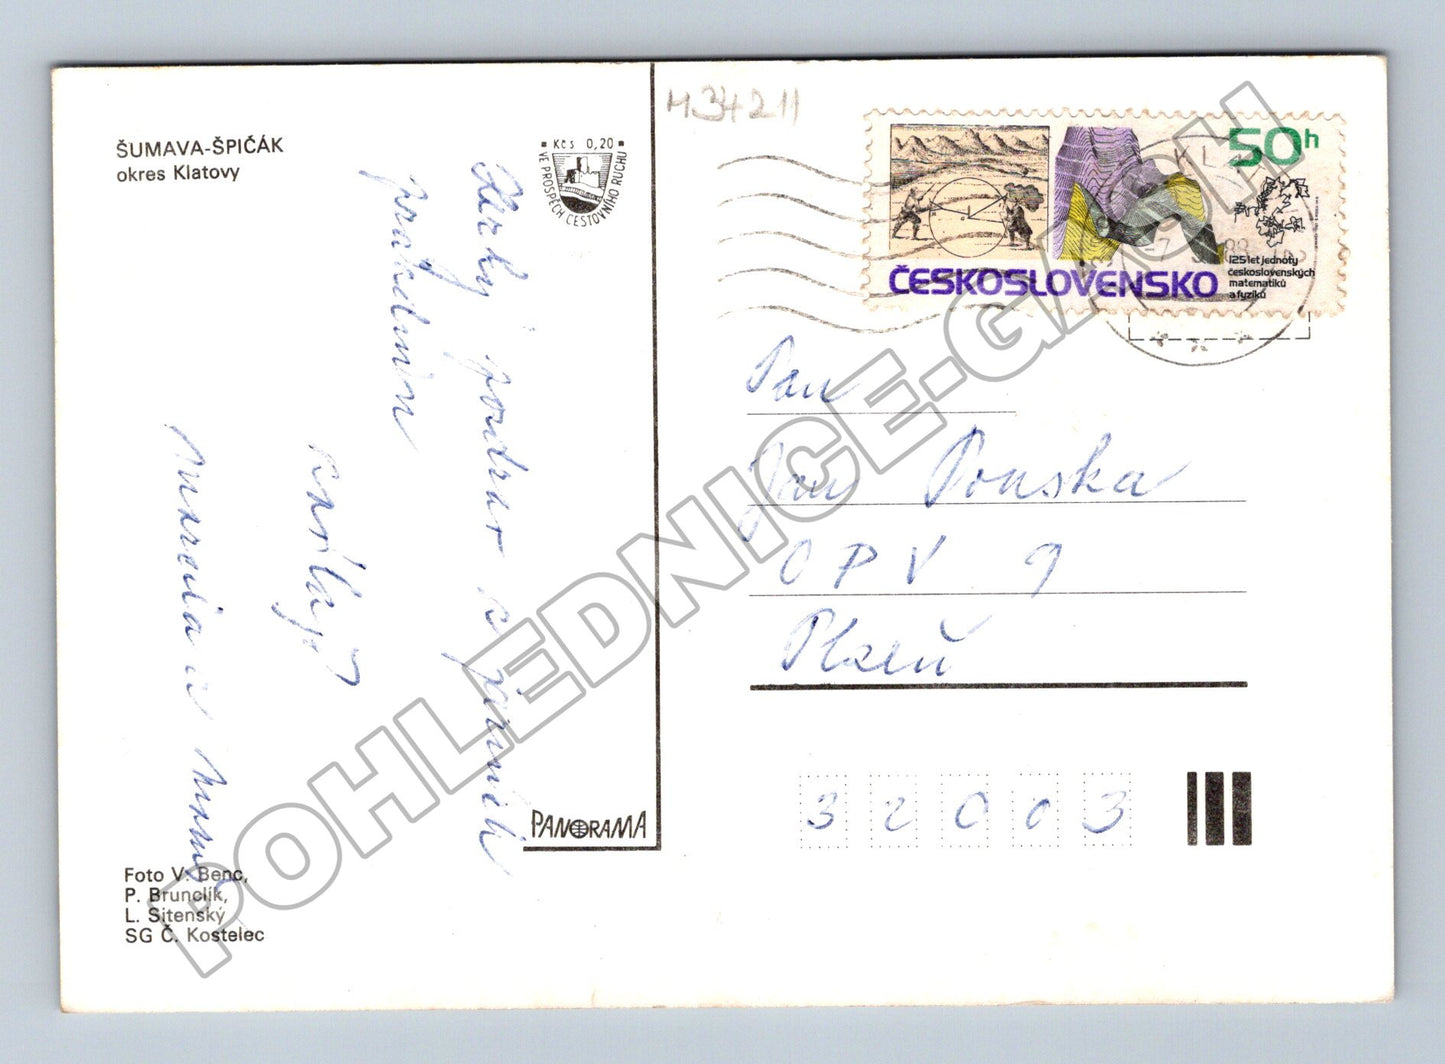 ŠUMAVA-ŠPIČÁK
okres Klatovy
Kčs 0,20
VE PROSPĚCH CESTOVNÍHO RUCHU
Hezký pozdrav z jarních
prázdnin
Marcela a
Foto V. Benc,
P. Brunclík,
L. Sitenský
SG Č. Kostelec
PANORAMA
M34211
50h
ČESKOSLOVENSKO
125 let jednoty
československých
matematiků
a fyziků
Pan
Jan Pouska
OPV 9
Plzeň
32003
POHLEDNICE-GACH